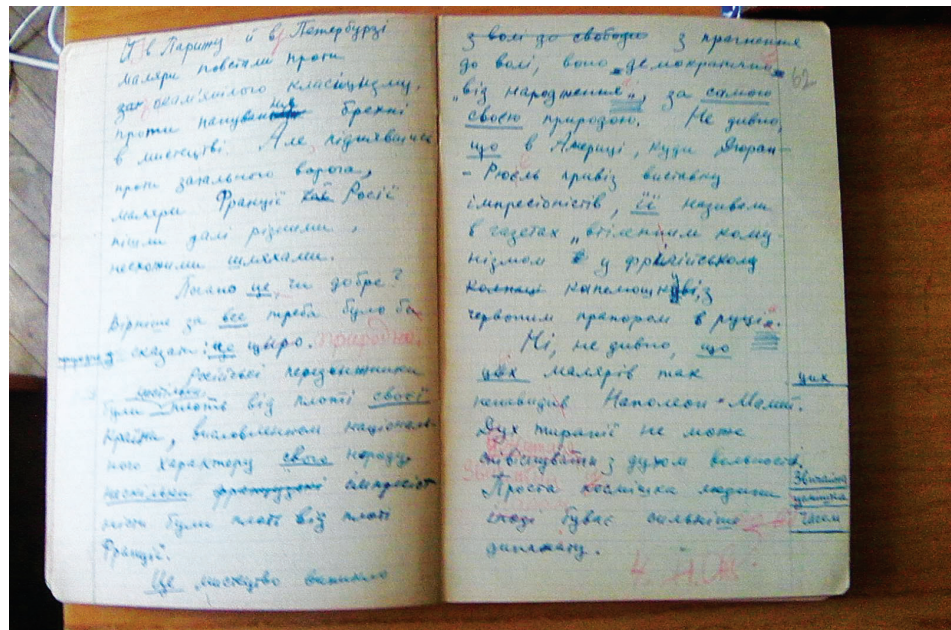 І в Парижі й в Петербурзі
маляри повстали проти
закам'янілого класіцизму,
проти
в мистецтві. Але, піднявшися
проти загального ворога,
маляри Франції Росії
пішли далі різними,
несхожими шляхами.
Погано це, чи добре?
Вірніше за все треба було би
сказати: це щиро. природно.
Російські передвижники
були плоттю від плоті своєї
країни, національ-
ного характеру свого народу,
імпресіо-
ністи були плоть від плоті
Франції.
Це мистецтво виникло
з волі до свободи з прагнення
до волі, воно „демократичне
62
„від народження", за самою
своєю природою. Не дивно,
що в Америці, куди Дюран-
-Рюель привіз виставку
імпресіоністів, її називали
в газетах „втіленим кому-
нізмом у французському
з
червоним прапором в руці".
Ні, не дивно, що
цих малярів так
цих
ненавидів Наполеон-Малий.
Дух тиранії не може
з духом вольності.
Звичайна
Проста усмішка людини
усмішка
іноді буває сильніше
часом
динаміту.